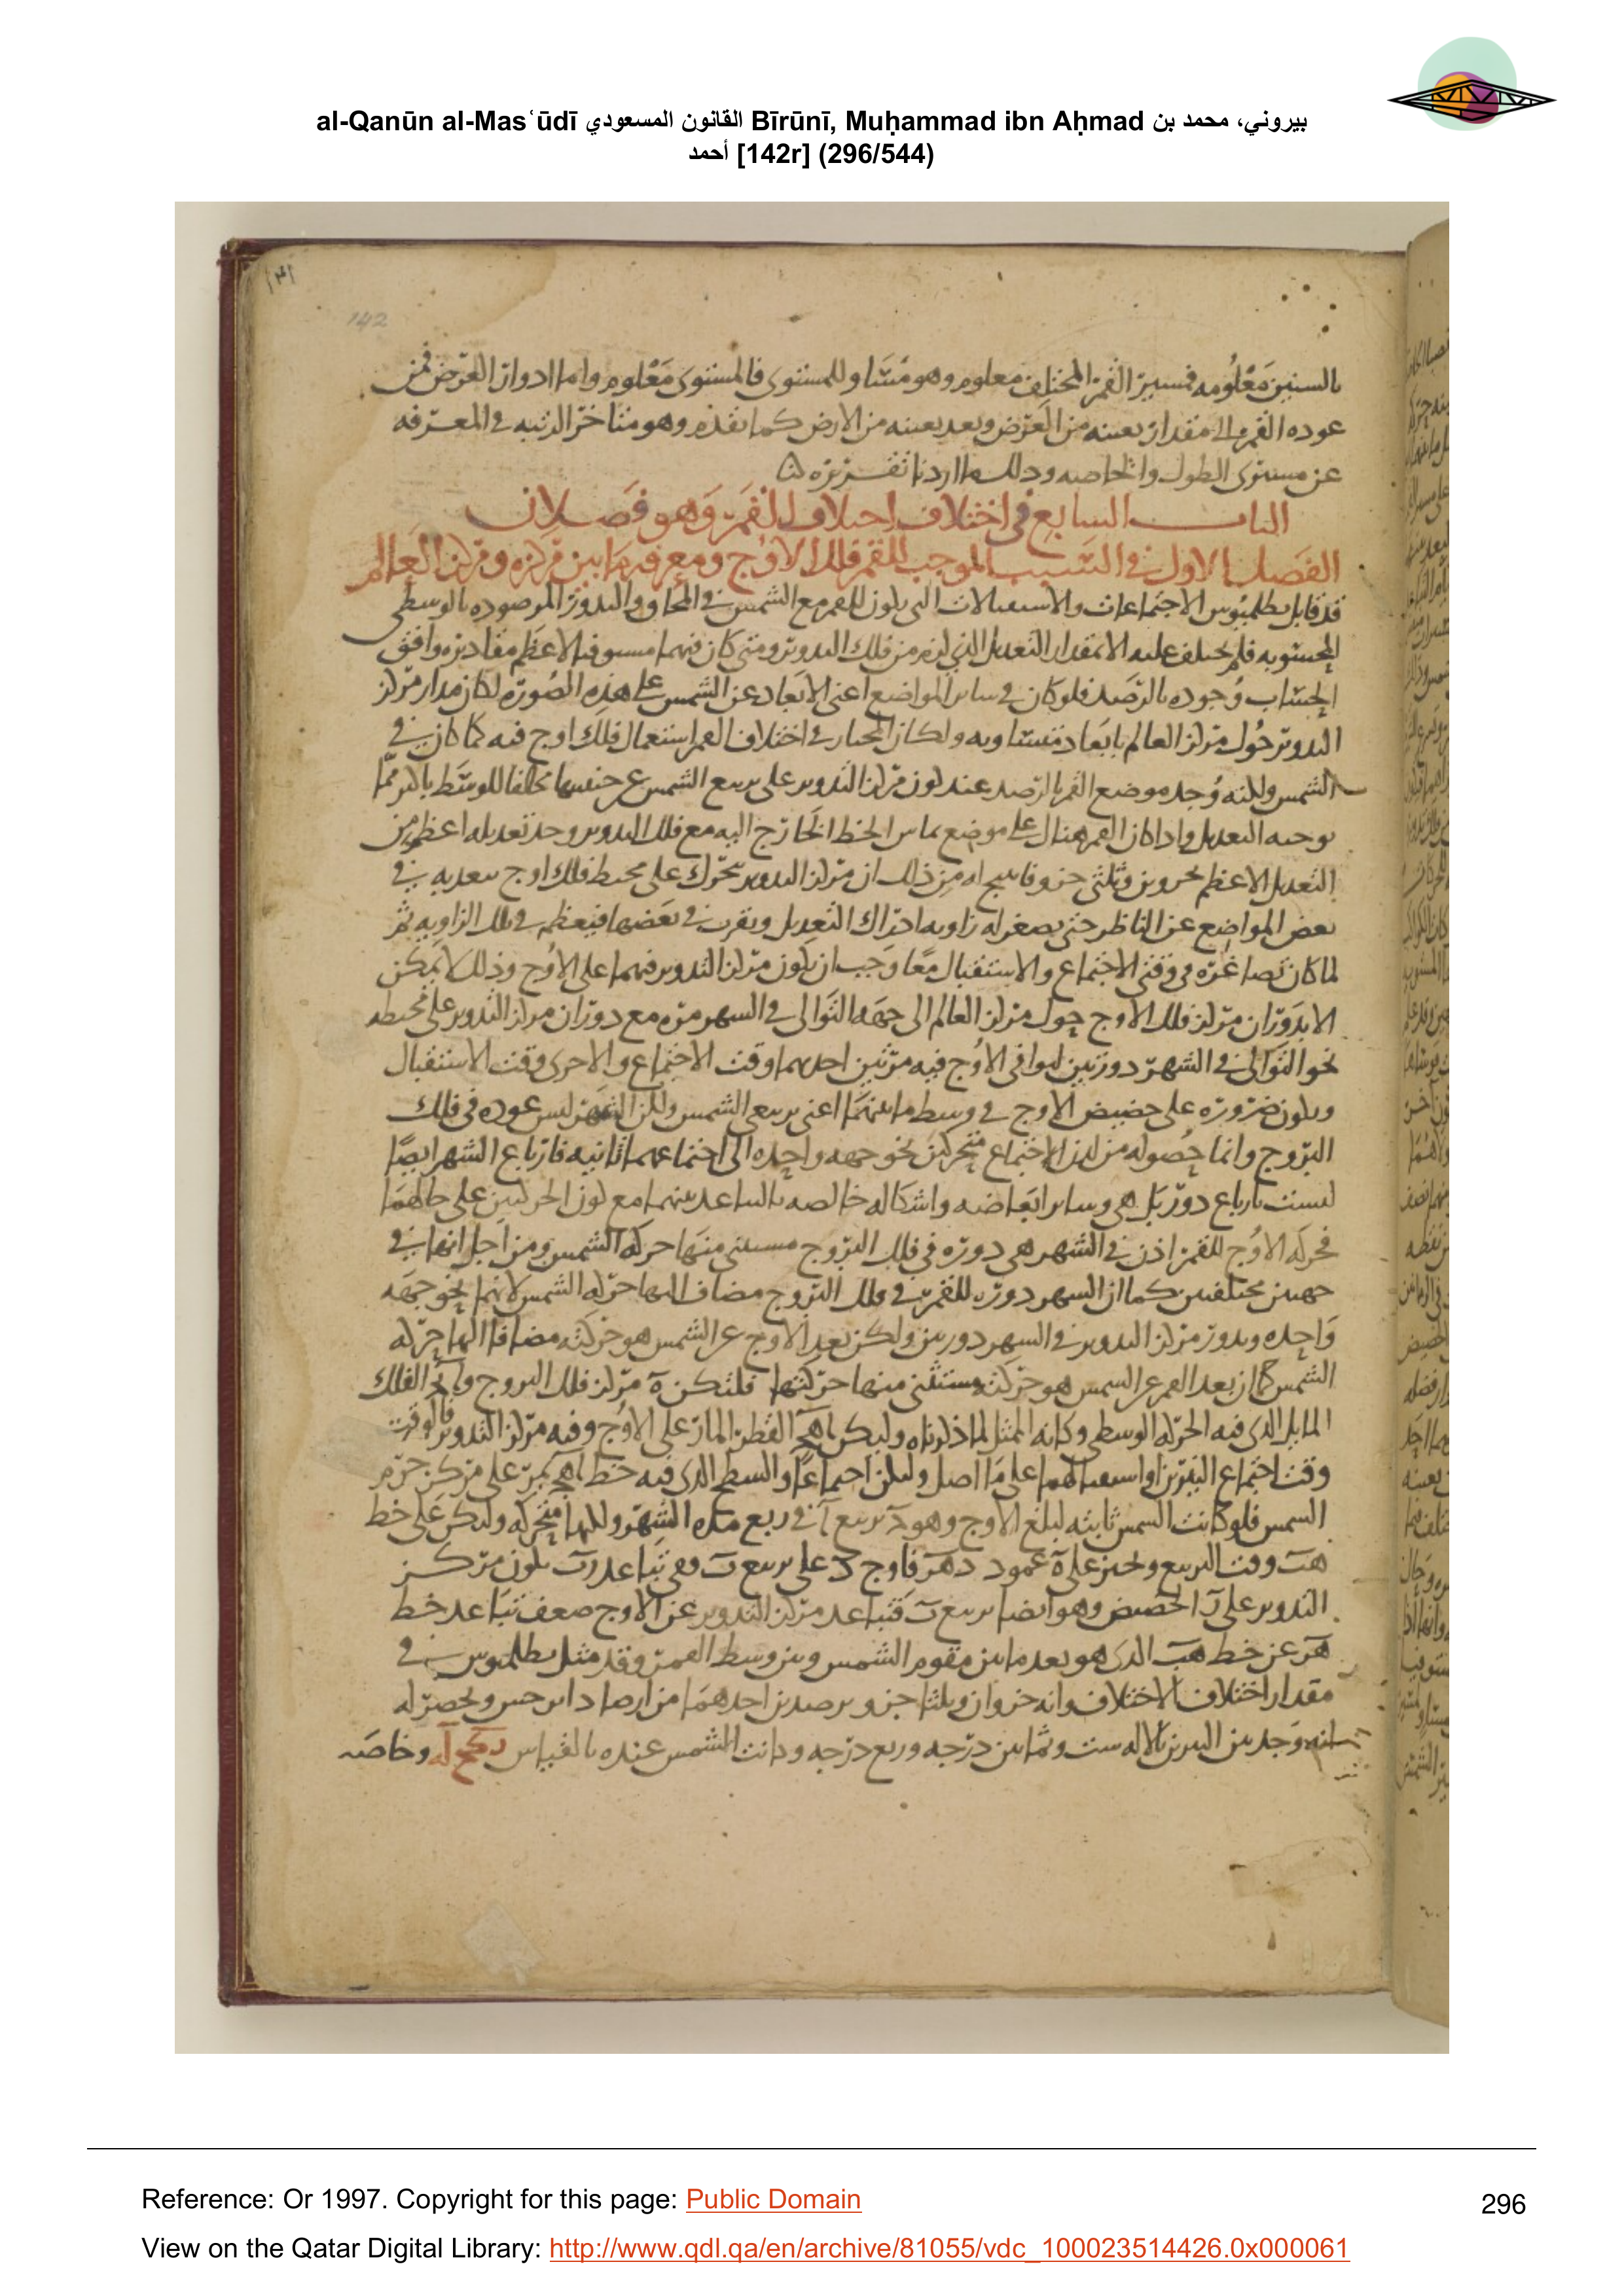 al-Qanūn al-Masʿūdī القانون المسعودي Bīrūnī, Muḥammad ibn Aḥmad بيروني، محمد بن
أحمد [142r] (296/544)
142
بالسنين معلومه فمسير القمر المختلف معلوم وهو مساو للمستوى فالمستوى معلوم واما ادوار العرض فمن
عوده القمر الى مقدار بعينه من العرض وبعد بعينه من الارض كما تقدم وهو متاخر الرتبه في المعرفه
عن مستوى الطول والخاصه وذلك ما اردنا تقريره
الباب السابع في اختلاف اختلاف القمر وهو فصلان
الفصل الاول في السبب الموجب للقمر فلك الاوج ومعرفه ما بين مركزه ومركز العالم
قد قابل بطلميوس الاجتماعات والاستقبالات التي يكون للقمر مع الشمس في المحاق والبدور المرصوده بالوسطى
المحسوبه فلم يختلف عليه الا بمقدار التعديل الذي لزم من فلك التدوير ومتى كان فيهما مستوفيا الاعظم مقاديره وافق
الحساب وجوده بالرصد فلو كان في ساير المواضع اعنى الابعاد عن الشمس على هذه الصوره لكان مدار مركز
التدوير حول مركز العالم بابعاد متساويه ولكان المختار في اختلاف القمر استعمال فلك اوج فيه كما كان في
الشمس ولكنه وجد موضع القمر بالرصد عند كون مركز التدوير على تربيع الشمس عن جنبيها مخالفا للوسط باكثر مما
يوجبه التعديل واذا كان القمر هنالك على موضع تماس الخط الخارج اليه مع فلك التدوير وجد تعديله اعظم من
التعديل الاعظم بجزوين وثلثى جزو فانتج له من ذلك ان مركز التدوير يتحرك على محيط فلك اوج يبعد به في
بعض المواضع عن الناظر حتى يصغر له زاويه ادراك التعديل ويقرب في بعضها فيعظم في تلك الزاويه ثم
لما كان تصاغره في وقتى الاجتماع والاستقبال معا وجب ان يكون مركز التدوير فيهما على الاوج وذلك لا يمكن
الا بدوران مركز فلك الاوج حول مركز العالم الى جهه التوالى في الشهر مره مع دوران مركز التدوير على محيطه
نحو التوالى في الشهر دورتين ليوافى الاوج فيه مرتين احديهما وقت الاجتماع والاخرى وقت الاستقبال
ويكون ضروره على حضيض الاوج في وسط ما بينهما اعنى تربيعى الشمس ولكن الشهر ليس عوده في فلك
البروج وانما حصوله من لدن الاجتماع متحركين نحو جهه واحده الى اجتماعهما ثانيه فارباع الشهر ايضا
ليست بارباع دور بل هى وساير ابعاضه واشكاله خالصه بالتباعد بينهما مع كون الحركتين على حالهما
فحركه الاوج للقمر اذن في الشهر هى دوره في فلك البروج مستثنى منها حركه الشمس ومن اجل انها في
جهتين مختلفتين كما ان الشهر دوره للقمر في فلك البروج مضاف اليها حركه الشمس لانهما نحو جهه
واحده ويدور مركز التدوير في الشهر دورتين ولكن بعد الاوج عن الشمس هو حركته مضافا اليها حركه
الشمس كما ان بعد القمر عن الشمس هو حركته مستثنى منها حركتها فلتكن ه مركز فلك البروج و الفلك
المايل الذى فيه الحركه الوسطى وكانه الممثل لما ذكرناه وليكن القطر المار على الاوج وفيه مركز التدوير فالوقت
وقت اجتماع النيرين او استقبالهما على ما اصل وليكن اجتماعا والسطح الذى فيه خط يمر على مركز جرم
الشمس فلو كانت الشمس ثابته لبلغ الاوج وهو د تربيع آ في ربع مده الشهر ولكنها متحركه وليكن على خط
هب وقت التربيع ونجيز على ه عمود دهر فاوج د على تربيع ب وفي تباعد رب يكون مركز
التدوير على ر الحضيض وهو ايضا تربيع ب فتباعد مركز التدوير عن الاوج ضعف تباعد خط
هر عن خط هب الذى هو بعد ما بين مقوم الشمس وبين وسط القمر وقد مثل بطلميوس في
مقدار اختلاف الاختلاف وانه جزوان وثلثا جزو برصدين احدهما من ارصاد ابرخس وبحضر له
انه وجد بين النيرين بالاله ست وثمانين درجه وربع درجه وكانت الشمس عنده بالقياس وخاصه
Reference: Or 1997. Copyright for this page: Public Domain
296
View on the Qatar Digital Library: http://www.qdl.qa/en/archive/81055/vdc_100023514426.0x000061